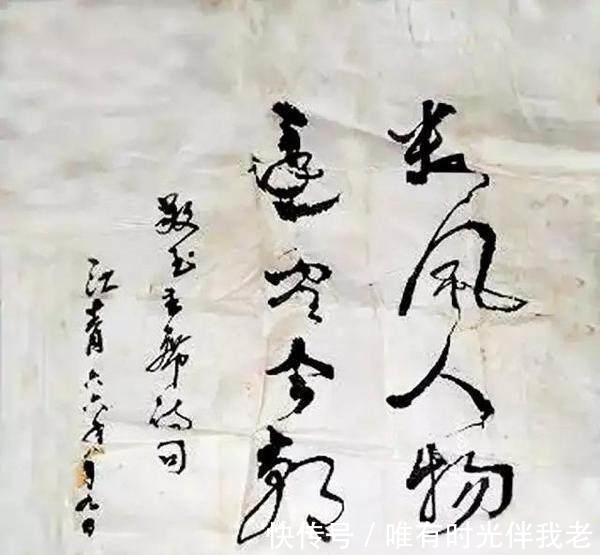 数风人物
还看今朝
敬书主席诗句
江青六六年月九日
快传号 / 唯有时光伴我老